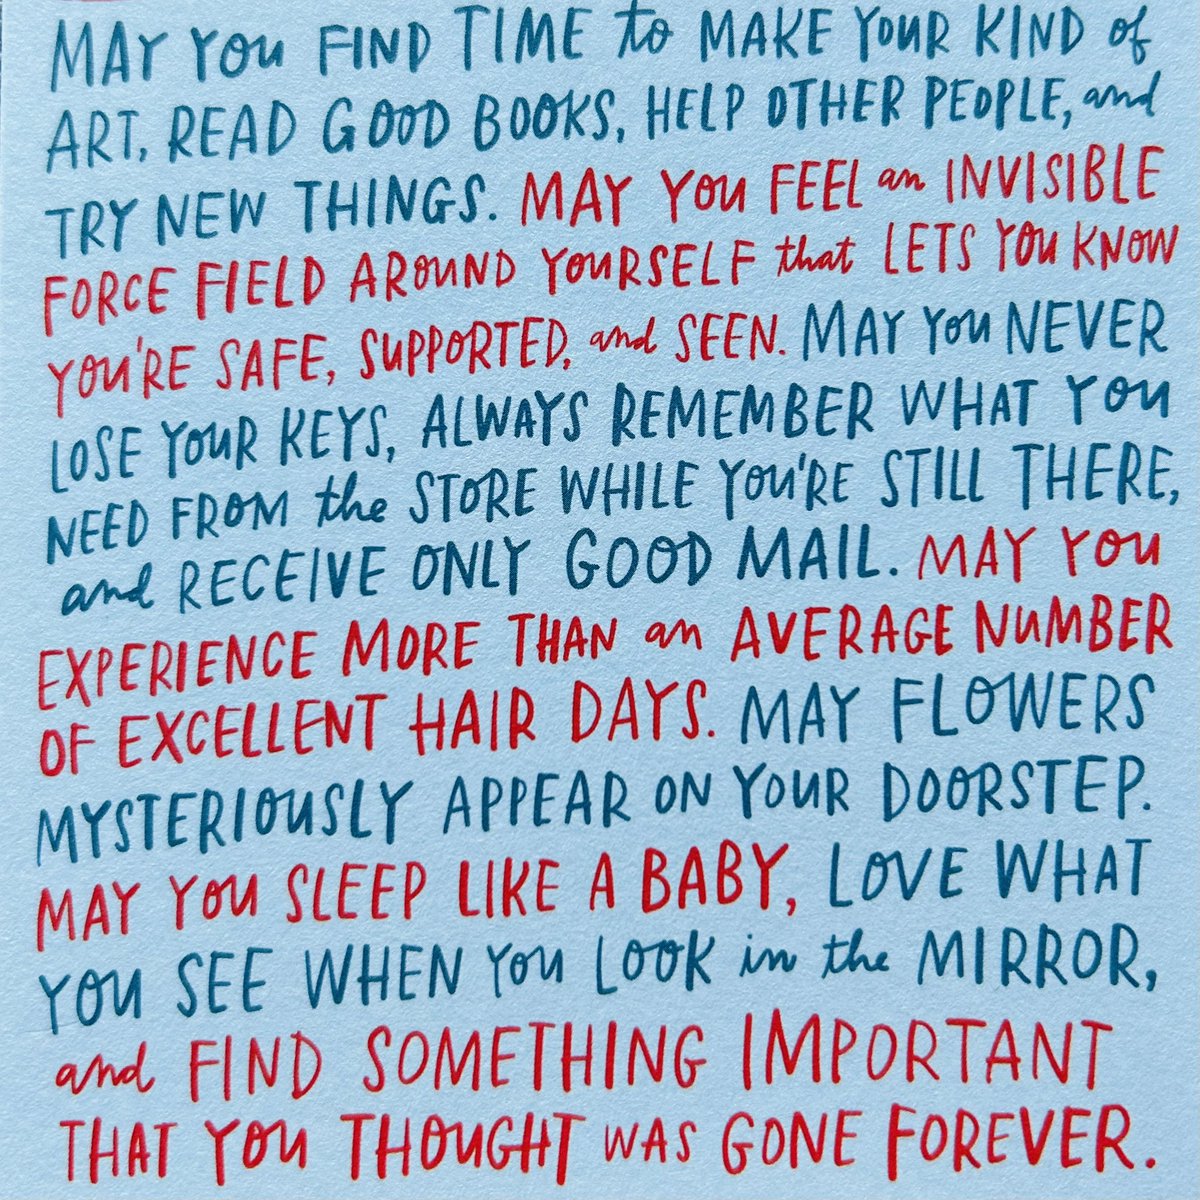 MAY YOU FIND TIME to MAKE YOUR KIND of
ART, READ GOOD BOOKS, HELP OTHER PEOPLE, and
TRY NEW THINGS. MAY YOU FEEL an INVISIBLE
FORCE FIELD AROUND YOURSELF that LETS YOU KNOW
YOU'RE SAFE, SUPPORTED, and SEEN. MAY YOU NEVER
LOSE YOUR KEYS, ALWAYS REMEMBER WHAT YOU
NEED FROM the STORE WHILE YOU'RE STILL THERE,
and RECEIVE ONLY GOOD MAIL. MAY YOU
EXPERIENCE MORE THAN an AVERAGE NUMBER
OF EXCELLENT HAIR DAYS. MAY FLOWERS
MYSTERIOUSLY APPEAR ON YOUR DOORSTEP.
MAY YOU SLEEP LIKE A BABY, LOVE WHAT
YOU SEE WHEN YOU LOOK in the MIRROR,
and FIND SOMETHING IMPORTANT
THAT YOU THOUGHT WAS GONE FOREVER.